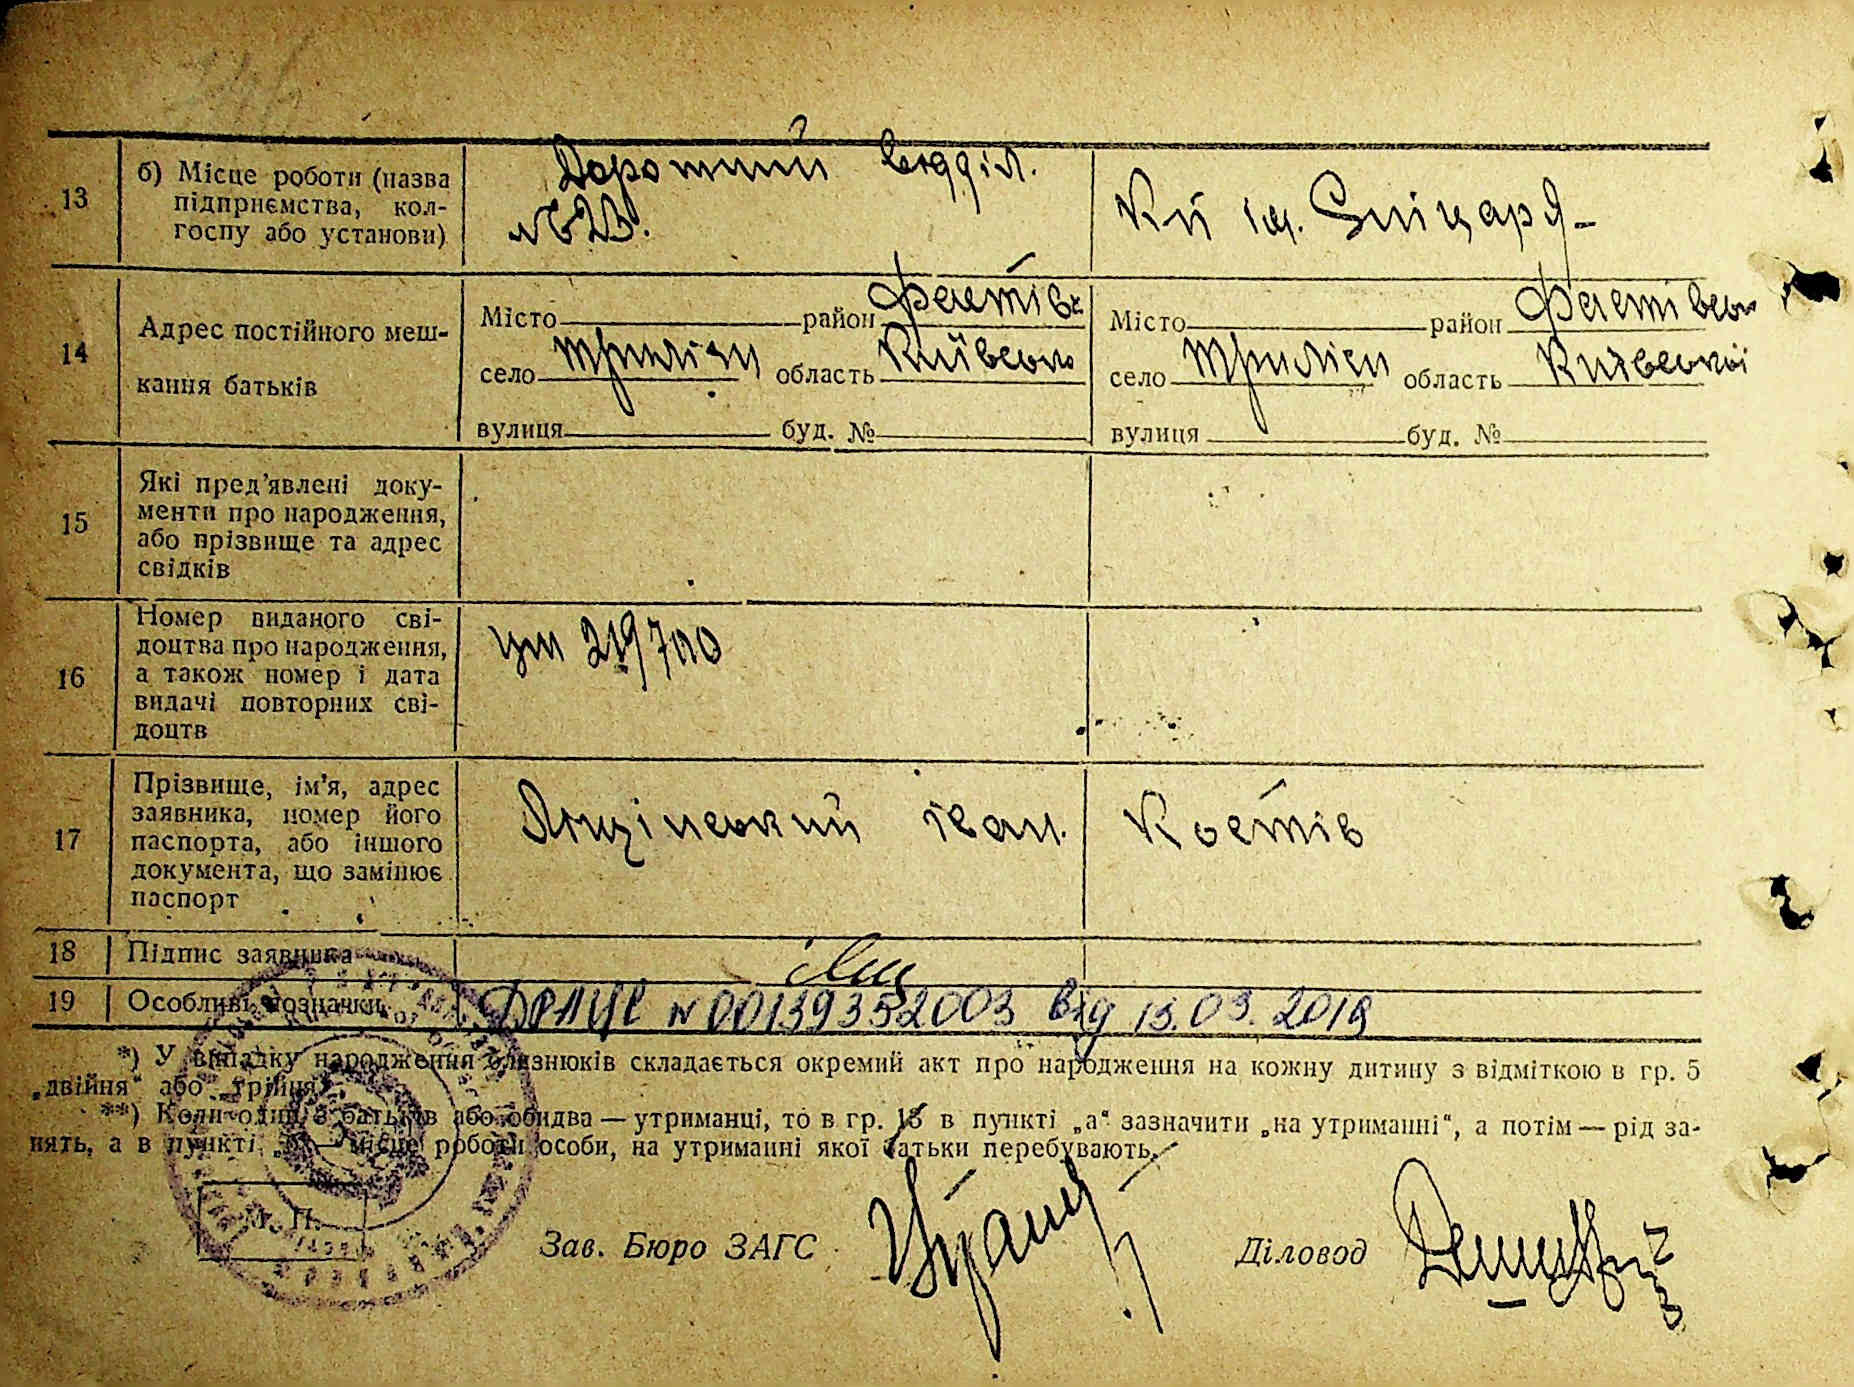 13
б) Місце роботи (назва
підприємства, кол-
госпу або установи)
Дорожний відділ.
№ 23.
14
Адрес постійного меш-
кання батьків
Місто район Фастівс
село Триліси область Київсько
вулиця буд. №
Місто район Фастівсько
село Триліси область Київської
вулиця буд. №
15
Які пред'явлені доку-
менти про народження,
або прізвище та адрес
свідків
16
Номер виданого сві-
доцтва про народження,
а також номер і дата
видачі повторних сві-
доцтв
219700
17
Прізвище, ім'я, адрес
заявника, номер його
паспорта, або іншого
документа, що замінює
паспорт
Іван Костів
18 Підпис заявника
19 Особливі позначки
ДРАЦС №00139352003 від 13.03.2019
*) У випадку народження близнюків складається окремий акт про народження на кожну дитину з відміткою в гр. 5
„двійня“ або „трійня“.
**) Коли один з батьків або обидва — утриманці, то в гр. 13 в пункті „а“ зазначити „на утриманні“, а потім — рід за-
нять, а в пункті місце роботи особи, на утриманні якої батьки перебувають.
М. П.
Зав. Бюро ЗАГС
Діловод